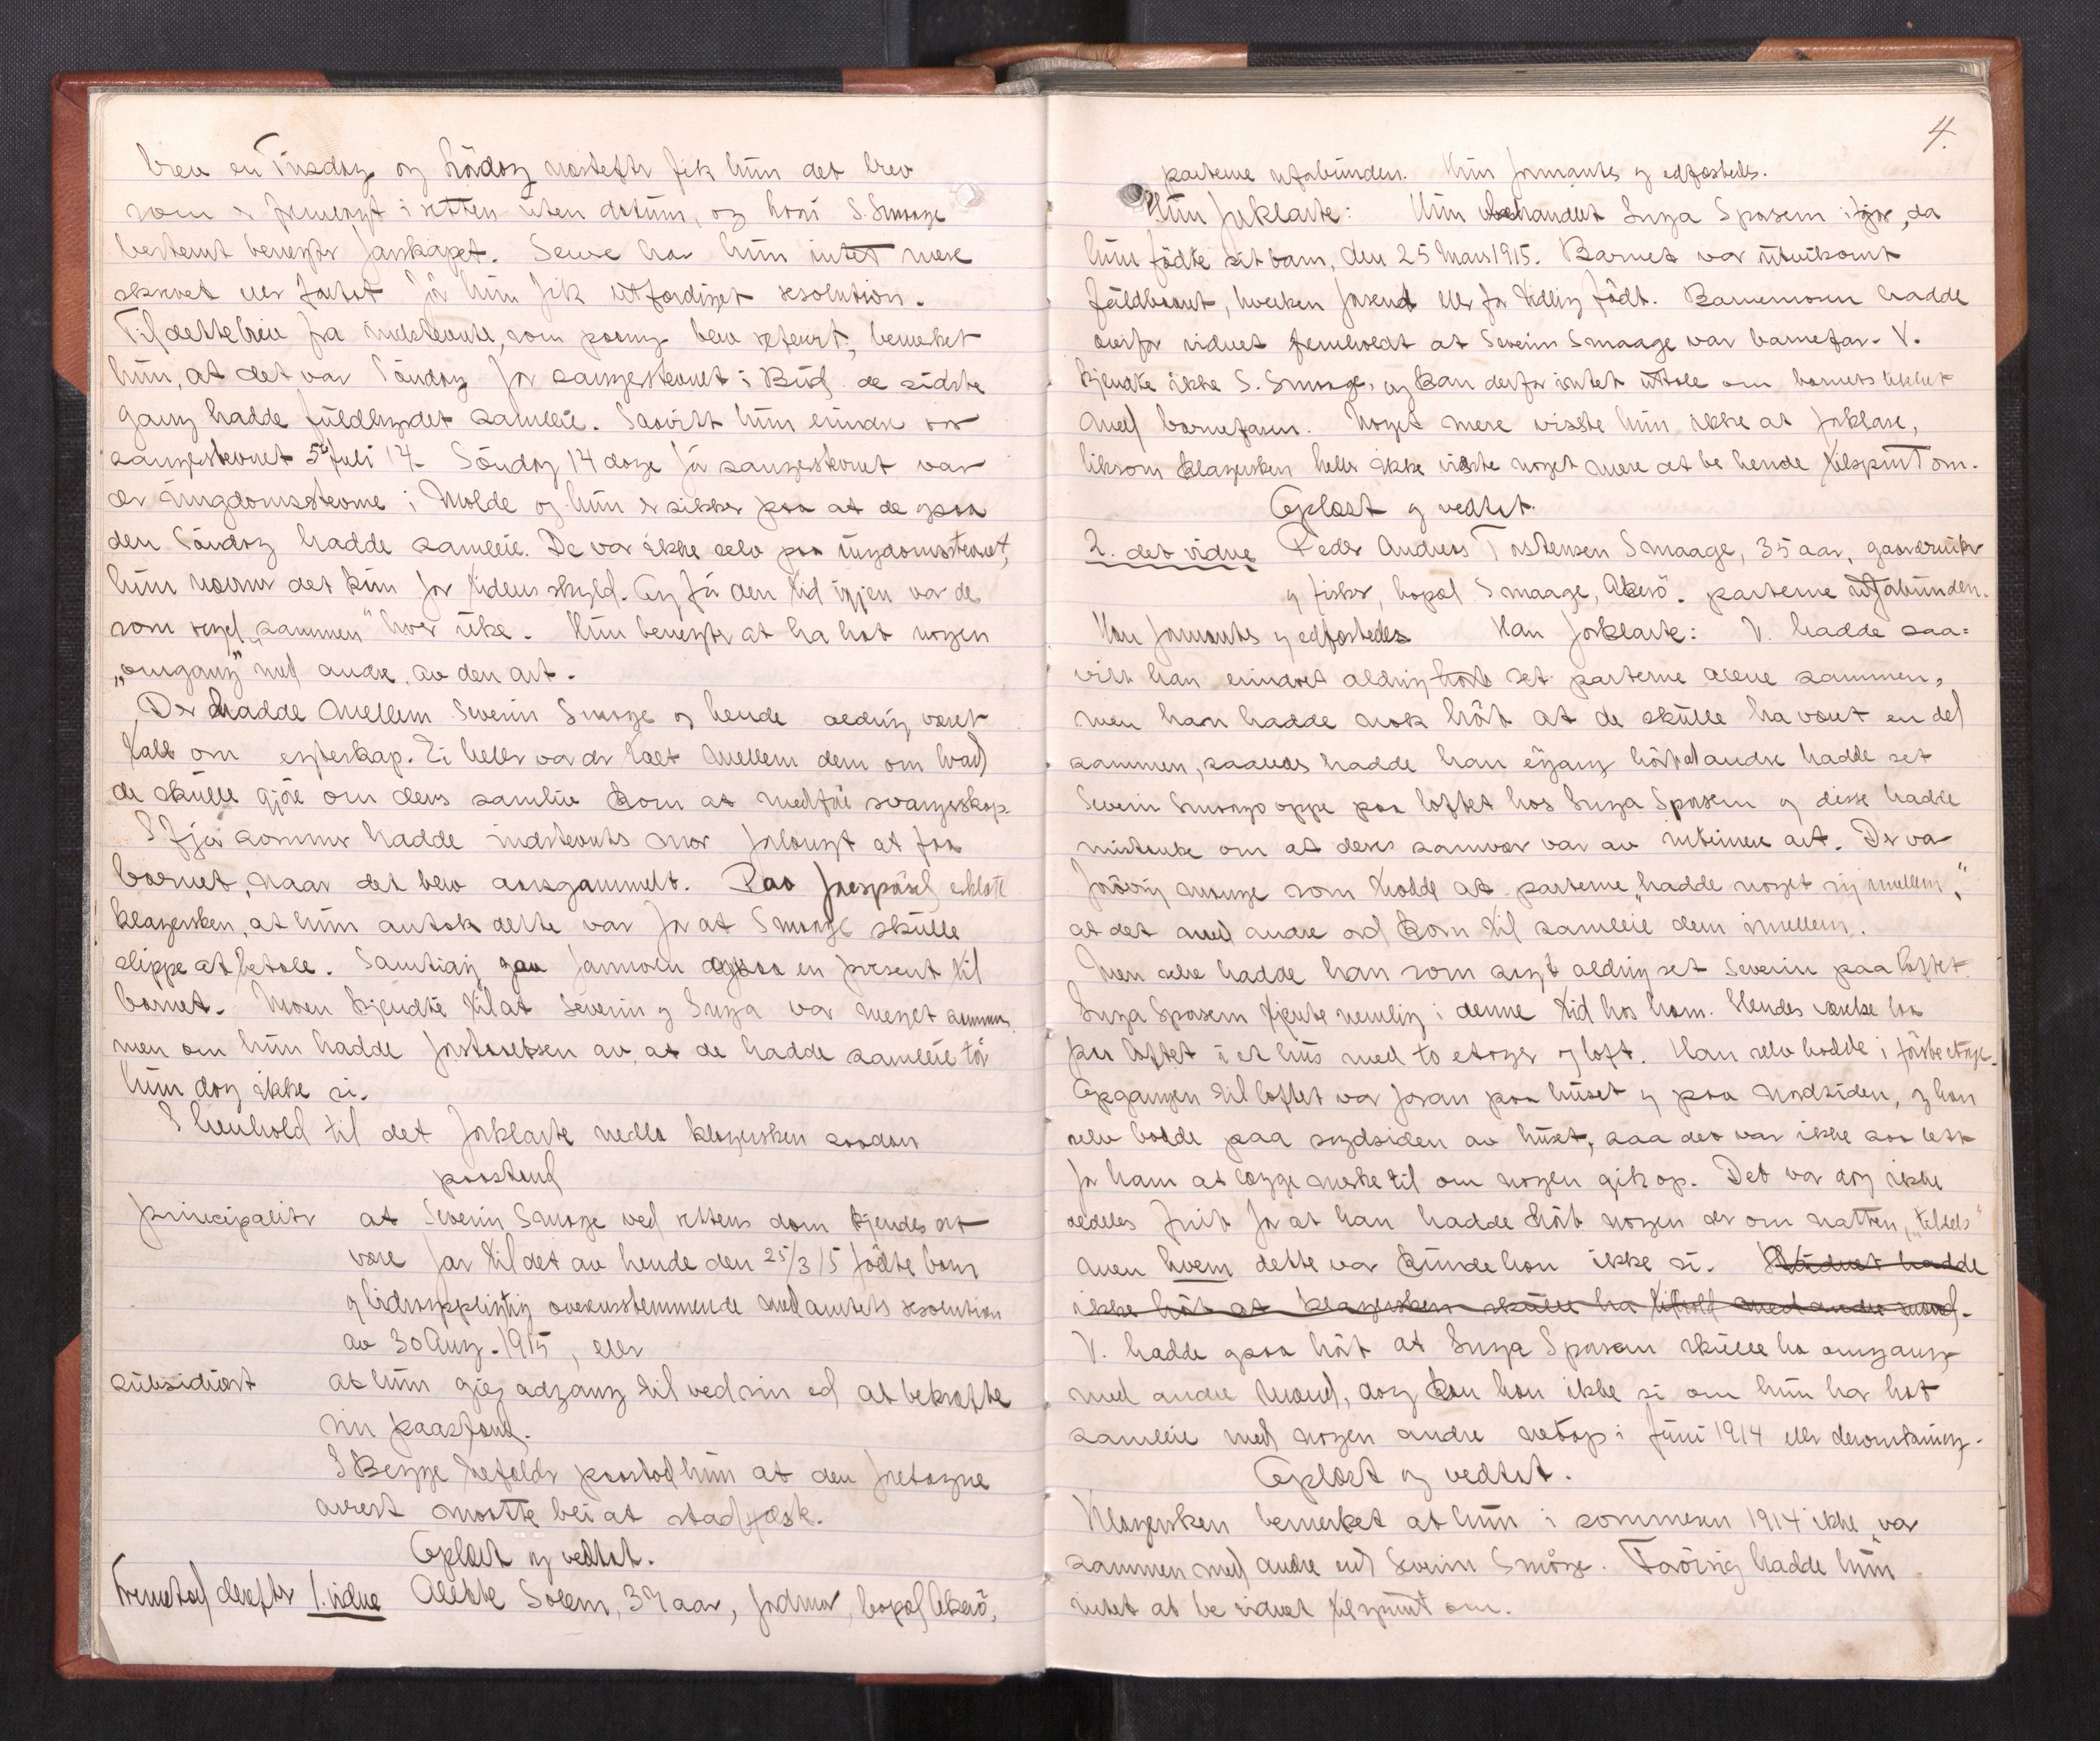 brev en Tirsdag og Lördag næstefter fik hun det brev
som er fremlagt i retten uten datum, og hvori S. Smaage
bestemt benegter farskapet. Senere har hun intet mere
skrevet eller fortat för hun fik utfærdiget resolution.
Til dette brev fra indstevnte, som paany blev referert, bemerket
hun, at det var Söndag för sangerstevnet i Bud de sidste
gang hadde fuldbyrdet samleie. Saavidt hun erindrer var
sangerstevnet 5te Juli 14. Söndag 14 dage för sangerstevnet var
der ungdomsstevne i Molde og hun er sikker paa at de ogsaa
den Söndag hadde samleie. De var ikke selv paa ungdomsstevnet,
hun nævner det kun for tidens skyld. Og för den tid igjen var de
som regel "sammen" hver uke. Hun benegter at ha hat nogen
"omgang" med andre av den art.
Der hadde mellem Severin Smaage og hende aldrig været
tale om egteskap. Ei heller var der talt mellem dem om hvad
de skulle gjöre om deres samleie kom at medföre svangerskap.
I fjor sommer hadde indstevntes mor forlangt at faa
barnet, naar det blev aarsgammelt. Paa forespörsel erklærte
klagersken, at hun antok dette var for at Smaage skulle
slippe at betale. Samtidig gav farmoren ogsaa en present til
barnet. Moren kjendte til at Severin og Inga var meget sammen
men om hun hadde forstaaelsen av, at de hadde samleie tör
hun dog ikke si.
I henhold til det forklarte nedla klagersken saadan
paastand
principaliter at Severin Smaage ved rettens dom kjendes at
være far til det av hende den 25/3 15 födte barn
og bidragspligtig overensstemmende med amtets resolution
av 30 Aug. 1915, eller
subsidiært at hun gies adgang til ved sin ed at bekræfte
sin paastand.
I Begge tilfælder paastod hun at den foretagne
arrest maatte bli at stadfæste.
Oplæst og vedtat.
Fremstod derefter 1. vidne Alette Solem, 37 aar, jordmor, bopæl Akerö,
4.
parterne uforbunden. Hun formantes og edfæstedes.
Hun forklarte: Hun behandlet Inga Sporsem ifjor, da
hun födte sit barn, den 25 Mars 1915. Barnet var utvilsomt
fuldbaaret, hverken forsend eller for tidlig födt. Barnemoren hadde
overfor vidnet fremholdt at Severin Smaage var barnefar. V.
kjendte ikke S. Smaage, og kan derfor intet uttale om barnets likhet
med barnefaren. Noget mere visste hun ikke at forklare,
liksom klagersken heller ikke visste noget mere at be hende tilspurt om.
Oplæst og vedtat.
2. det vidne Peder Andreas Torstensen Smaage, 35 aar, gaardbruker
og fisker, bopæl Smaage, Akerö. parterne uforbunden.
Han formantes og edfæstedes Han forklarte: V. hadde saa=
vidt han erindret aldrig hört set parterne alene sammen,
men han hadde nok hört at de skulle ha været en del
sammen, saaledes hadde han engang hört at andre hadde set
Severin Smaage oppe paa loftet hos Inga Sporsem og disse hadde
mistanke om at deres samvær var av intimere art. Der var
forövrig mange som trodde at parterne "hadde noget sig imellem",
at det med andre ord kom til samleie dem imellem.
Men selv hadde han som sagt aldrig set Severin paa loftet.
Inga Sporsem tjente nemlig i denne tid hos ham. Hendes værelse laa
paa loftet i et hus med to etager og loft. Han selv bodde i förste etage.
Opgangen til loftet var foran paa huset og paa nordsiden, og han
selv bodde paa sydsiden av huset, saa det var ikke saa lett
for ham at lægge merke til om nogen gik op. Det var dog ikke
aldeles frit for at han hadde hört nogen der om natten, "tildels"
men hvem dette var kunde han ikke si. Vidnet hadde
ikke hört at klagersken skulle ha tilhold med andre mænd.
V. hadde ogsaa hört at Inga Sporsem skulle ha omgang
med andre mænd, dog kan han ikke si om hun har hat
samleie med nogen andre netop i Juni 1914 eller deromkring.
Oplæst og vedtat.
Klagersken bemerket at hun i sommeren 1914 ikke var
sammen med andre end Severin Smaage. Forövrig hadde hun
intet at be vidnet tilspurt om.